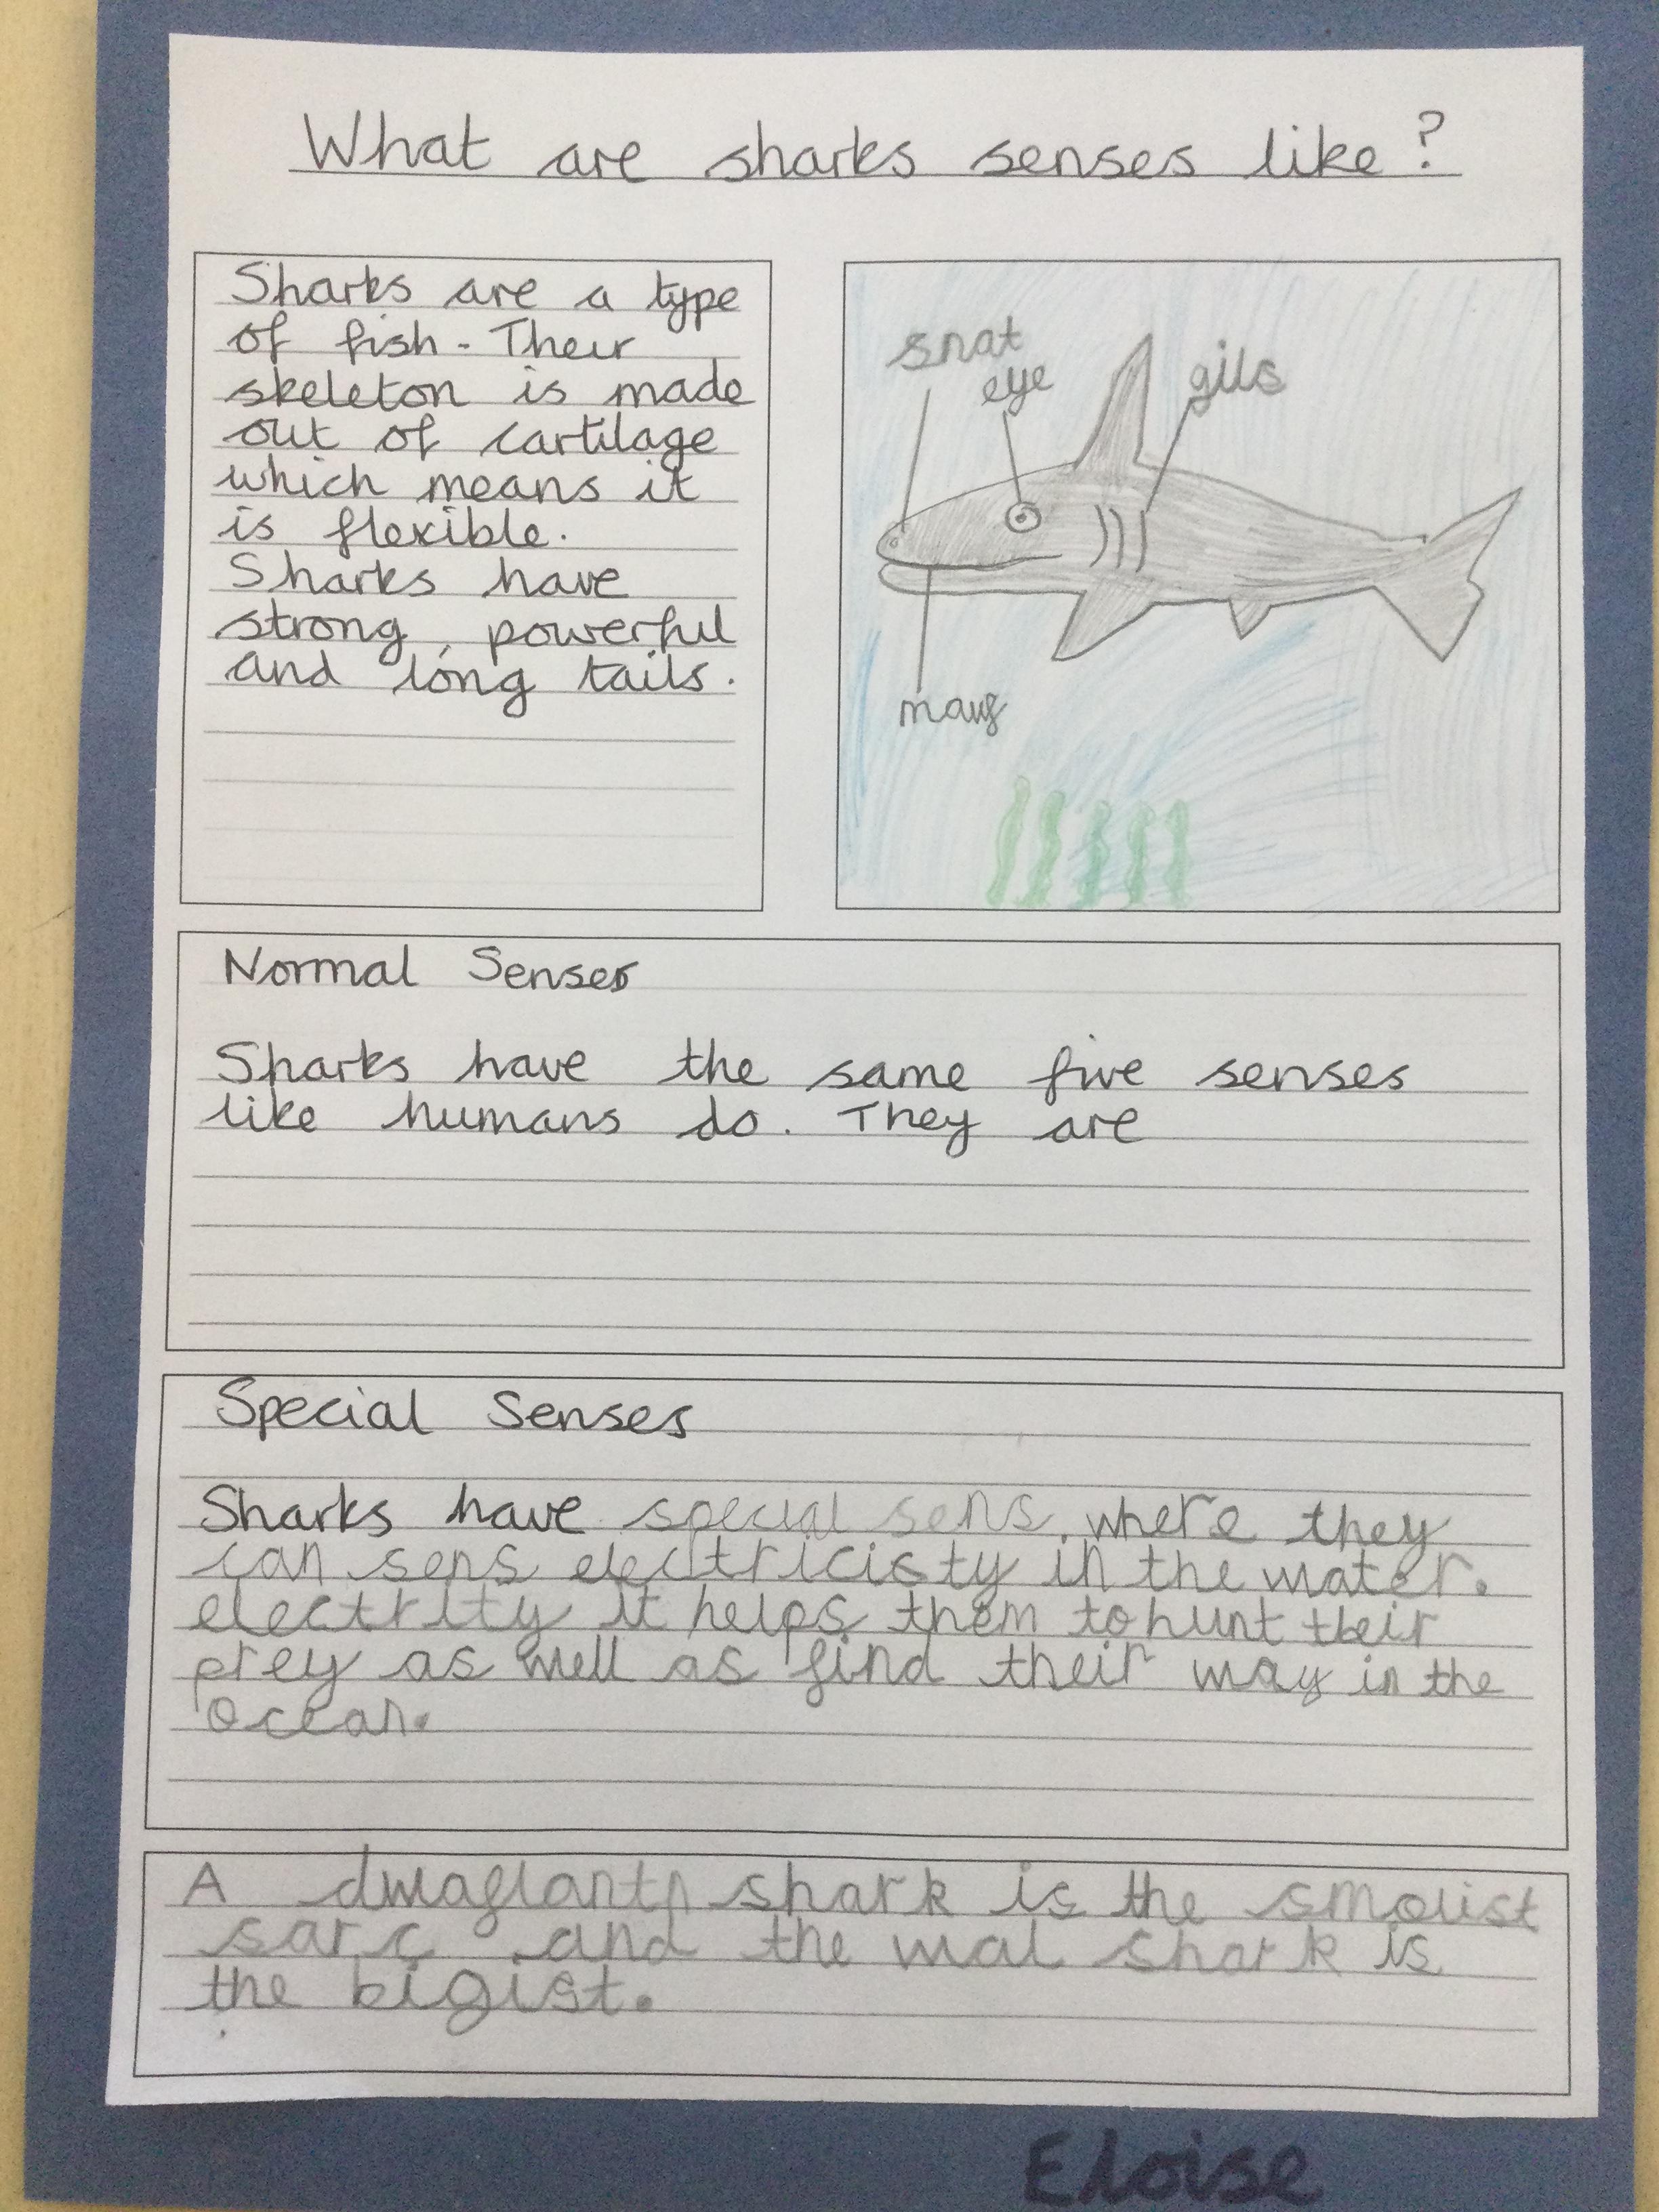 What are sharks senses like?
Sharks are a type
of fish. Their
skeleton is made
out of cartilage
which means it
is flexible.
Sharks have
strong, powerful
and long tails.
snat
eye
gils
mauf
Normal Senses
Sharks have the same five senses
like humans do. They are
Special Senses
Sharks have special sens. where they
can sens electricisty in the water.
electrity it helps them to hunt their
prey as well as find their way in the
ocean.
A shark is the smolist
sarc and the wal shark is
the bigist.
Eloise